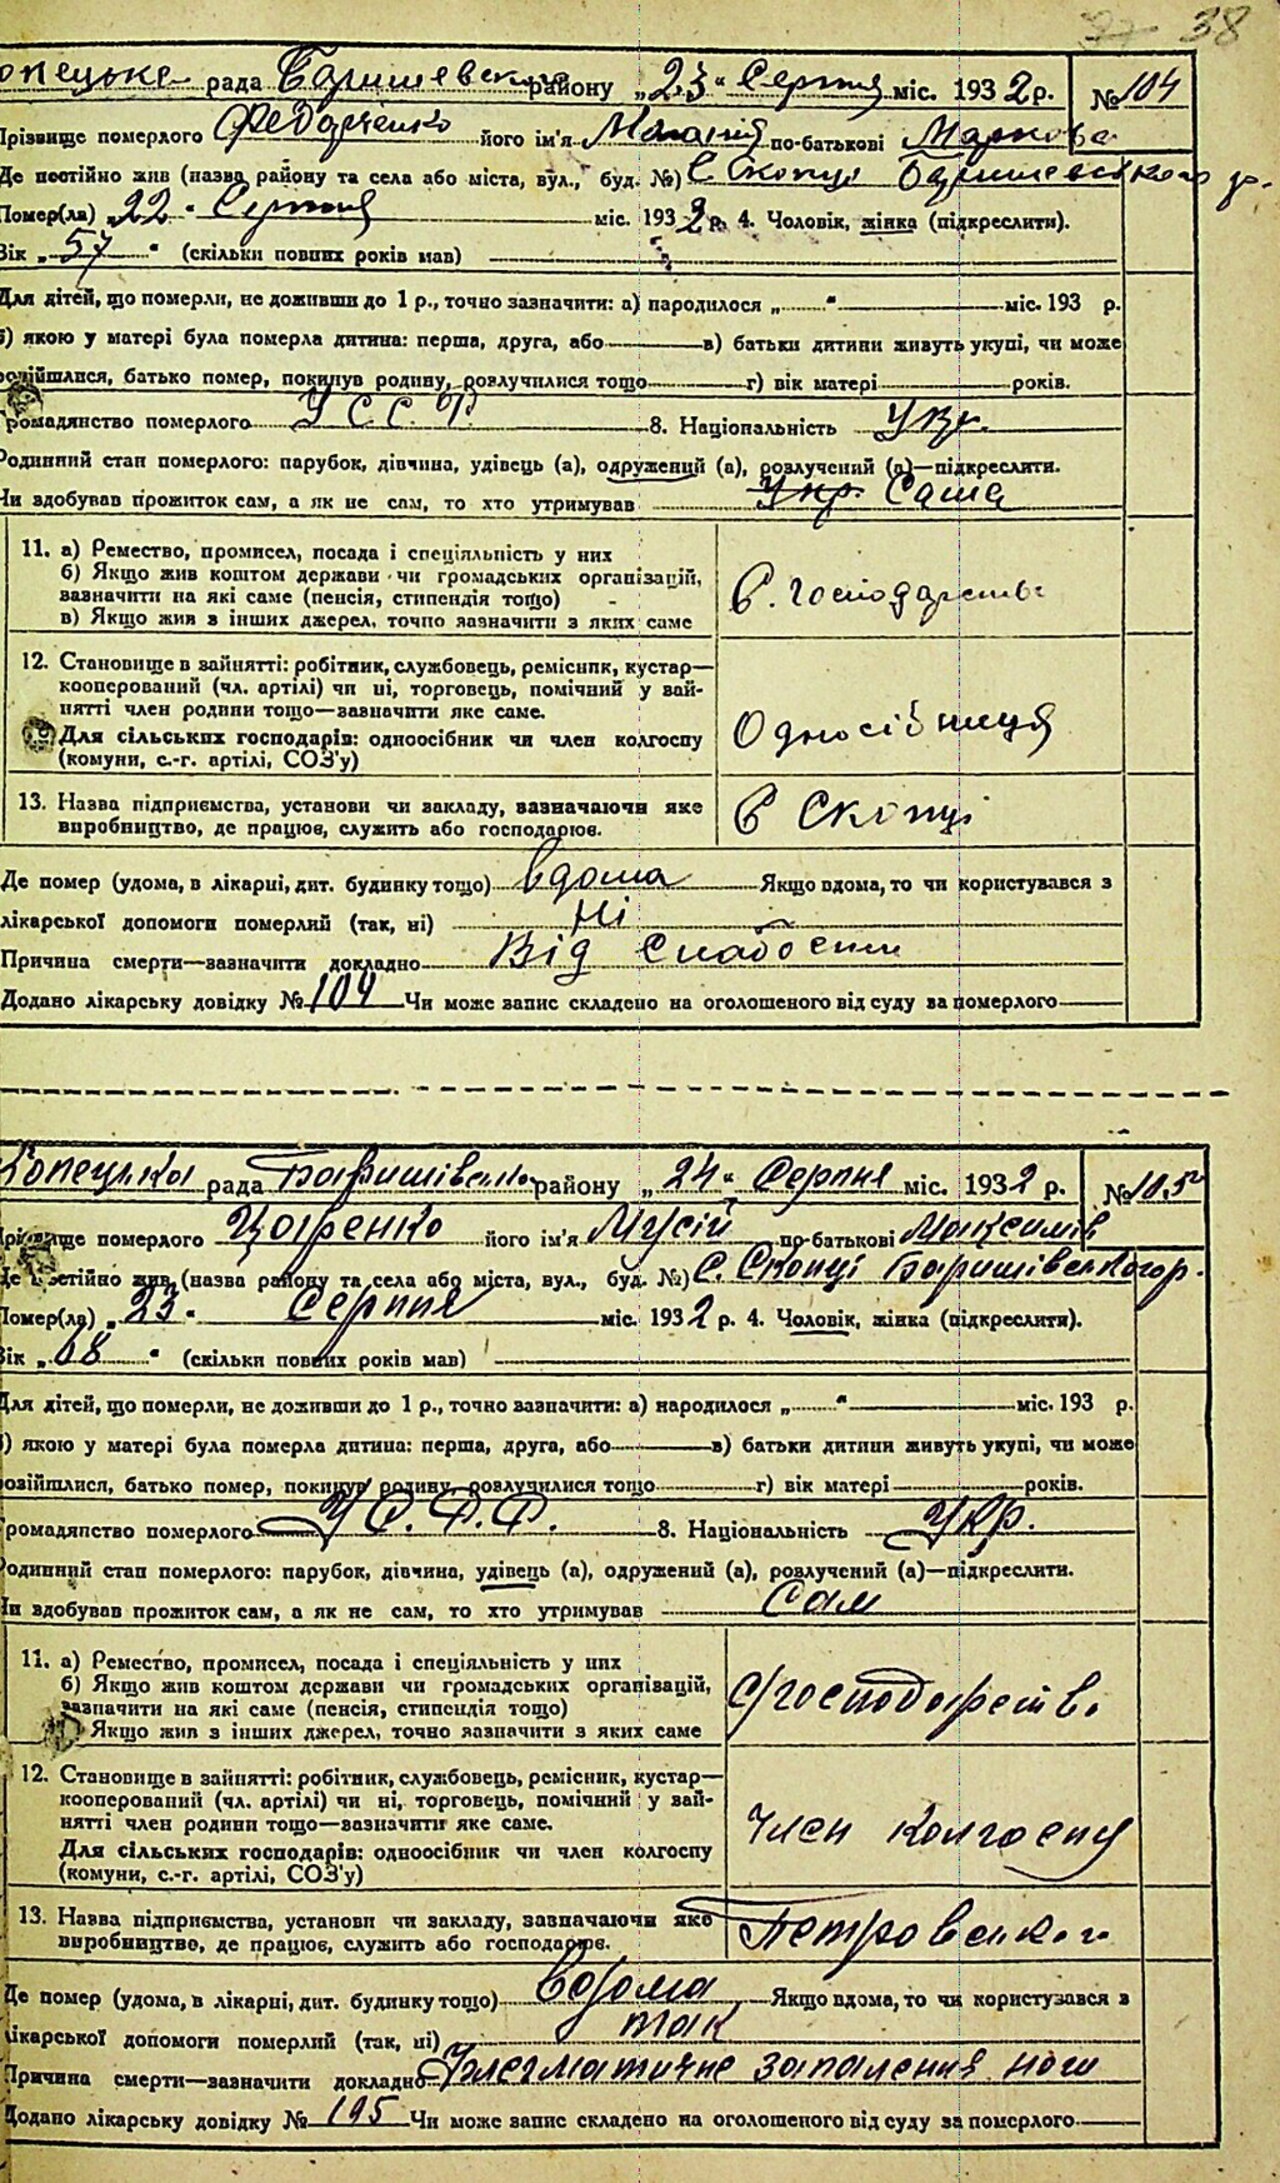 38
опецьке рада Баришевского району „23“ Серпня міс. 1932 р. № 104
Прізвище померлого Федорченко його ім'я Маланія по-батькові Маркова
Де постійно жив (назва району та села або міста, вул., буд. №) С Скопці Баришевского р.
Помер(ла) „22“ Серпня міс. 1932 р. 4. Чоловік, жінка (підкреслити).
Вік „57“ (скільки повних років мав)
Для дітей, що померли, не доживши до 1 р., точно зазначити: а) народилося „ “ міс. 193 р.
б) якою у матері була померла дитина: перша, друга, або в) батьки дитини живуть укупі, чи може
розійшлися, батько помер, покинув родину, розлучилися тощо г) вік матері років.
Громадянство померлого У С. С. Р. 8. Національність Укр.
Родинний стан померлого: парубок, дівчина, удівець (а), одружений (а), розлучений (а)—підкреслити.
Чи здобував прожиток сам, а як не сам, то хто утримував Укр. Сама
11. а) Ремество, промисел, посада і спеціяльність у них
б) Якщо жив коштом держави чи громадських організацій,
зазначити на які саме (пенсія, стипендія тощо)
в) Якщо жив з інших джерел, точно зазначити з яких саме
В. господарстві
12. Становище в зайнятті: робітник, службовець, ремісник, кустар—
кооперований (чл. артілі) чи ні, торговець, помічний у зай-
нятті член родини тощо—зазначити яке саме.
Для сільських господарів: одноосібник чи член колгоспу
(комуни, с.-г. артілі, СОЗ'у)
Односібниця
13. Назва підприємства, установи чи закладу, зазначаючи яке
виробництво, де працює, служить або господарює.
В Скопці
Де помер (удома, в лікарні, дит. будинку тощо) вдома Якщо вдома, то чи користувався з
лікарської допомоги померлий (так, ні) Ні
Причина смерти—зазначити докладно Від слабости
Додано лікарську довідку № 104 Чи може запис складено на оголошеного від суду за померлого
Копецька рада Баришівського району „24“ Серпня міс. 1932 р. № 105
Прізвище померлого його ім'я Мусій по-батькові Максимів
Де постійно жив (назва району та села або міста, вул., буд. №) С. Скопці Баришівського р.
Помер(ла) „23“ Серпня міс. 1932 р. 4. Чоловік, жінка (підкреслити).
Вік „68“ (скільки повних років мав)
Для дітей, що померли, не доживши до 1 р., точно зазначити: а) народилося „ “ міс. 193 р.
б) якою у матері була померла дитина: перша, друга, або в) батьки дитини живуть укупі, чи може
розійшлися, батько помер, покинув родину, розлучилися тощо г) вік матері років.
Громадянство померлого У С. Р. Р. 8. Національність Укр.
Родинний стан померлого: парубок, дівчина, удівець (а), одружений (а), розлучений (а)—підкреслити.
Чи здобував прожиток сам, а як не сам, то хто утримував Сам
11. а) Ремество, промисел, посада і спеціяльність у них
б) Якщо жив коштом держави чи громадських організацій,
зазначити на які саме (пенсія, стипендія тощо)
Якщо жив з інших джерел, точно зазначити з яких саме
12. Становище в зайнятті: робітник, службовець, ремісник, кустар—
кооперований (чл. артілі) чи ні, торговець, помічний у зай-
нятті член родини тощо—зазначити яке саме.
Для сільських господарів: одноосібник чи член колгоспу
(комуни, с.-г. артілі, СОЗ'у)
Член колгоспу
13. Назва підприємства, установи чи закладу, зазначаючи яке
виробництво, де працює, служить або господарює.
Петровського
Де помер (удома, в лікарні, дит. будинку тощо) вдома Якщо вдома, то чи користувався з
лікарської допомоги померлий (так, ні) так
Причина смерти—зазначити докладно Флегматичне запалення ноги
Додано лікарську довідку № 195 Чи може запис складено на оголошеного від суду за померлого